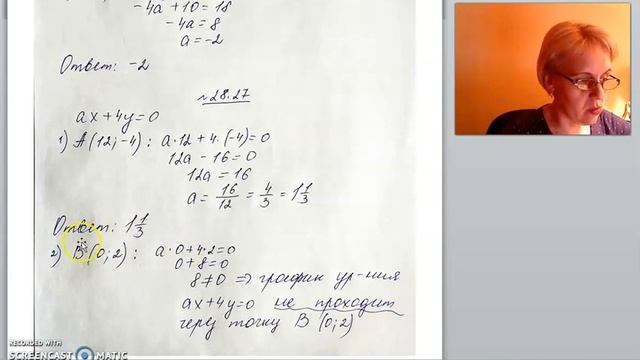 -4a +10 = 18
-4a = 8
a = -2
Ответ: -2
№28.27
ax+4y=0
1) A(12;-4): a·12 + 4·(-4)=0
12a - 16 = 0
12a = 16
a = 16/12 = 4/3 = 1 1/3
Ответ: 1 1/3
2) B(0;2): a·0+4·2=0
0+8=0
8≠0 => график ур-ния
ax+4y=0 не проходит
через точку B (0;2)
RECORDED WITH
SCREENCAST MATIC